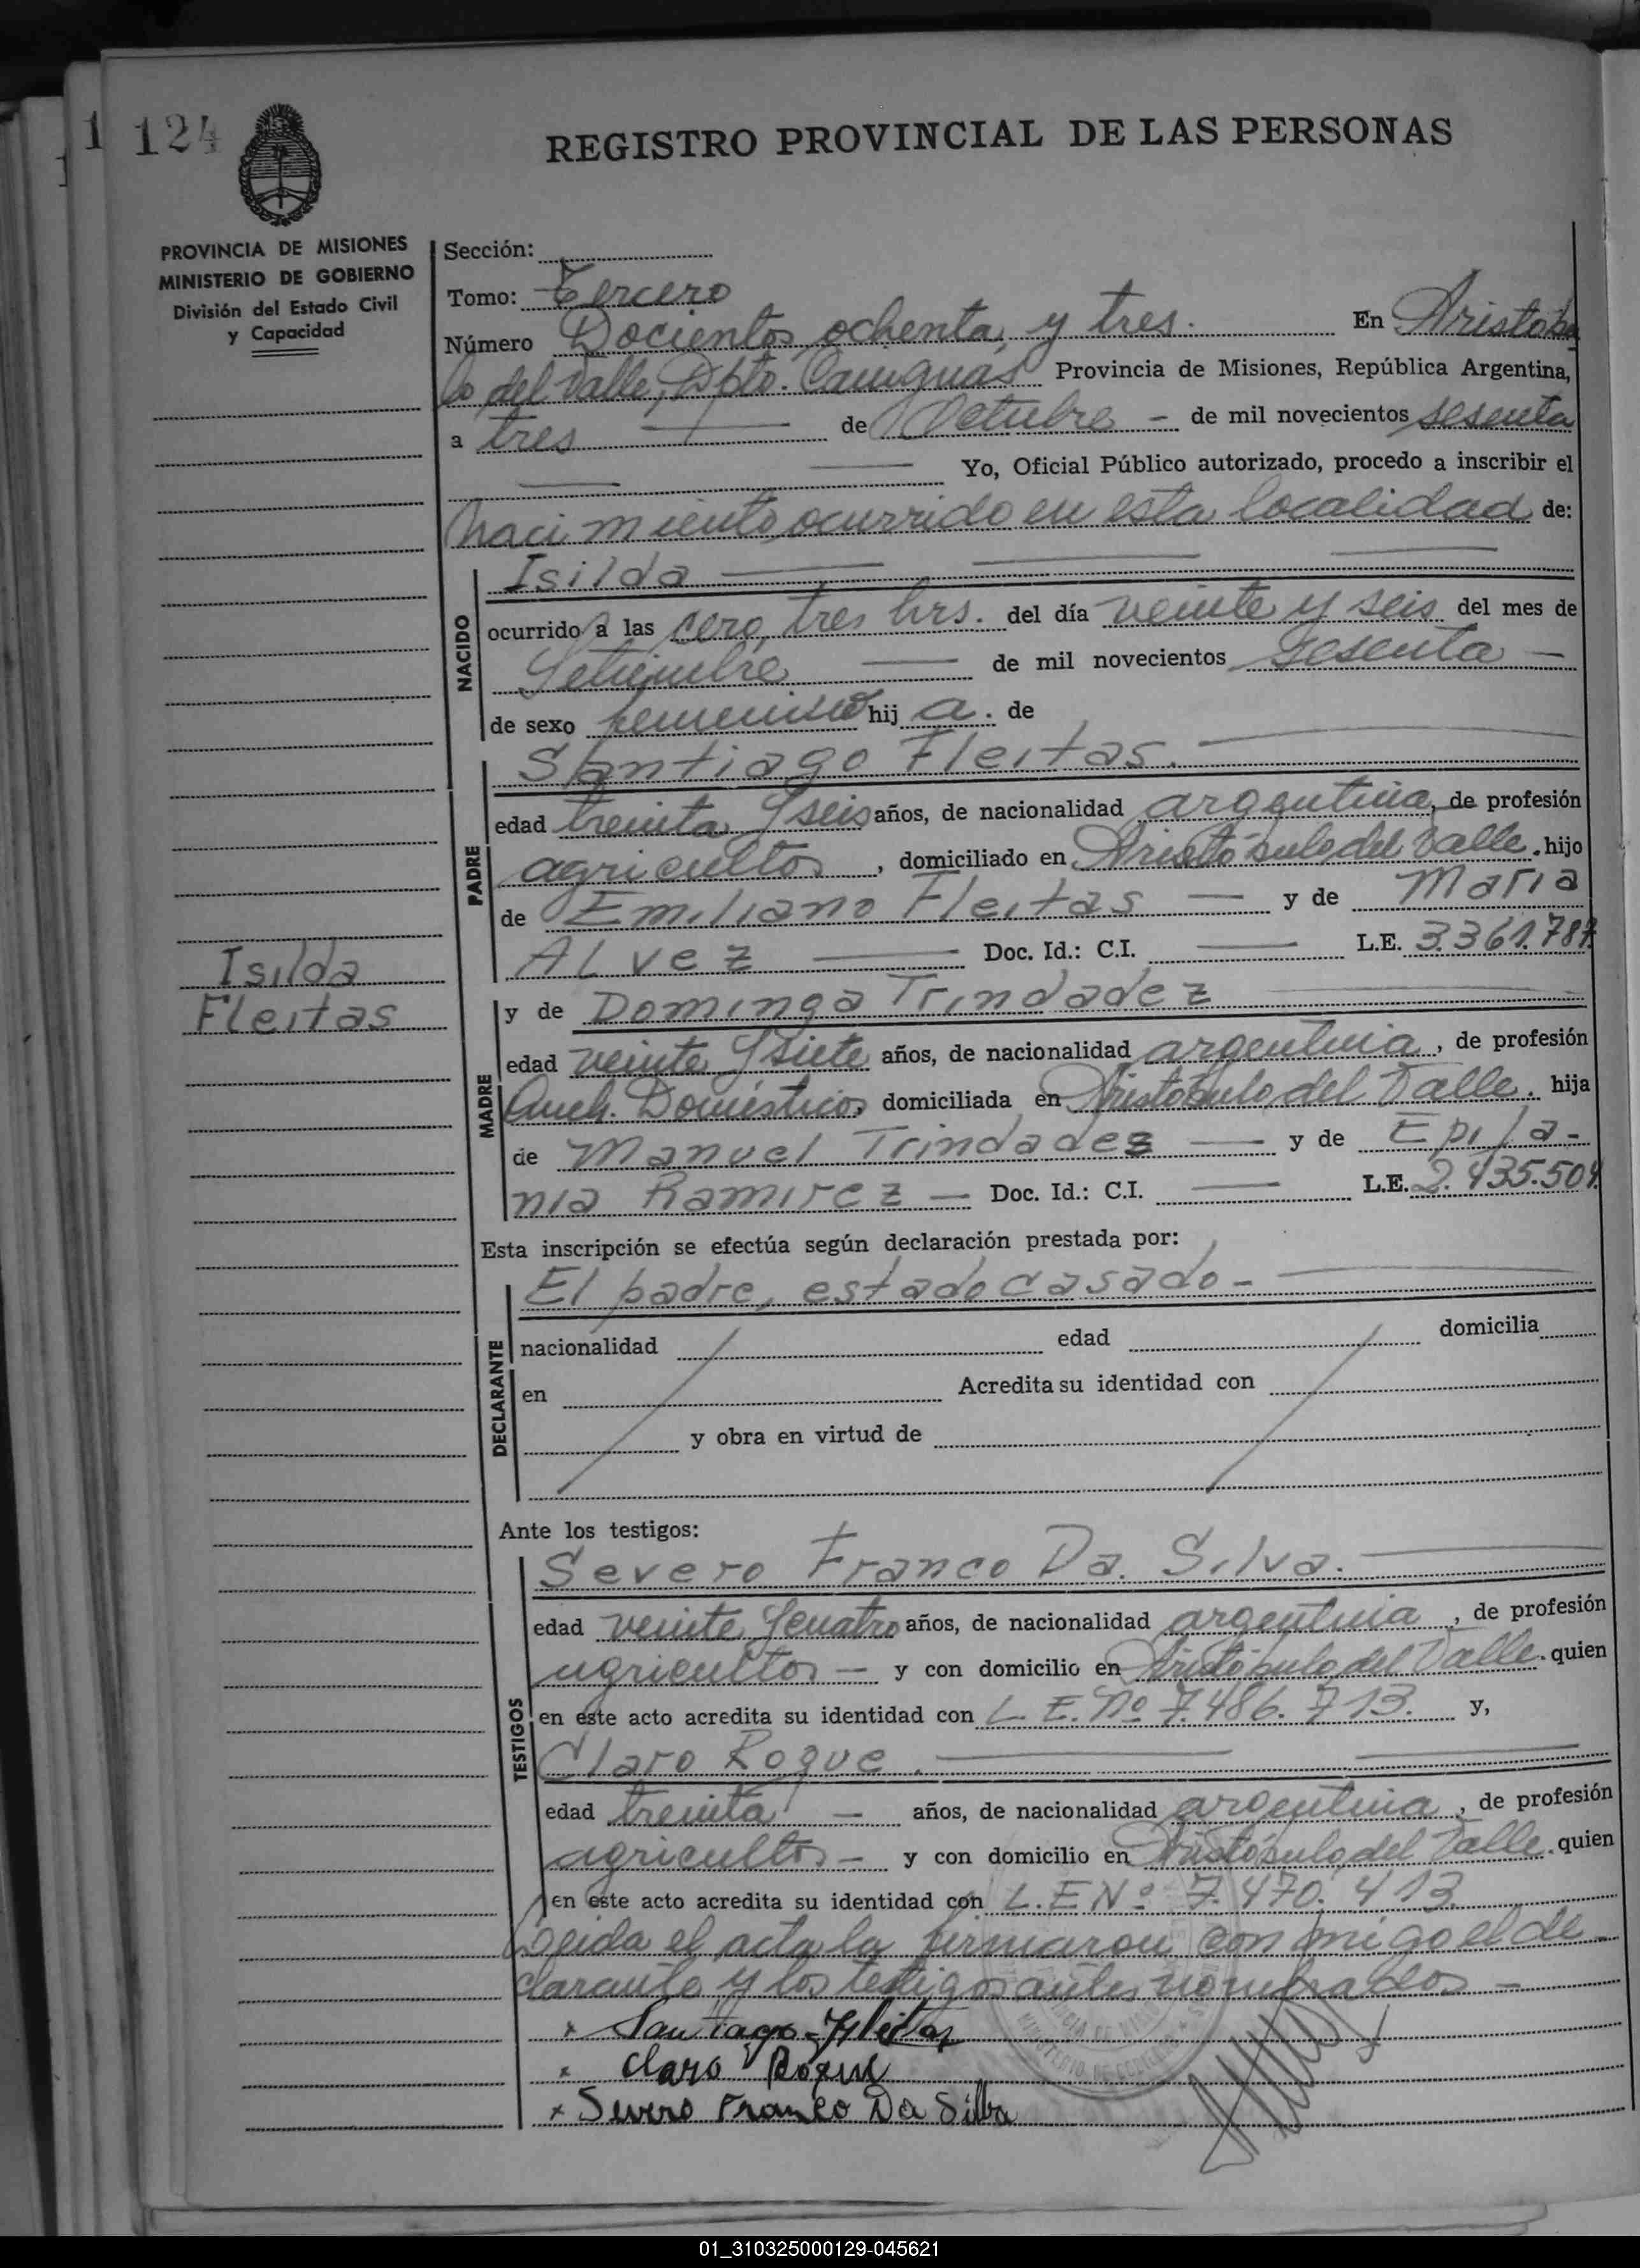 124
REGISTRO PROVINCIAL DE LAS PERSONAS
PROVINCIA DE MISIONES
MINISTERIO DE GOBIERNO
División del Estado Civil
y Capacidad
Sección:
Tomo: Tercero
Número Docientos ochenta y tres. En Aristobu
lo del Valle, Dpto. Cainguas Provincia de Misiones, República Argentina,
a tres de Octubre - de mil novecientos sesenta
Yo, Oficial Público autorizado, procedo a inscribir el
nacimiento ocurrido en esta localidad de:
Isilda
NACIDO
ocurrido a las cero tres hrs. del día veinte y seis del mes de
Setiembre de mil novecientos sesenta -
de sexo femenino hij a. de
Santiago Fleitas.
PADRE
edad treinta y seis años, de nacionalidad argentina, de profesión
agricultor, domiciliado en Aristóbulo del Valle. hijo
de Emiliano Fleitas y de Maria
Alvez Doc. Id.: C.I. L.E. 3.361.787
Isilda
Fleitas
y de Dominga Trindadez
MADRE
edad veinte y siete años, de nacionalidad argentina, de profesión
Queh. Domésticos, domiciliada en Aristóbulo del Valle. hija
de Manuel Trindadez y de Epifa-
nia Ramirez - Doc. Id.: C.I. L.E. 2.435.504
Esta inscripción se efectúa según declaración prestada por:
El padre, estado casado -
DECLARANTE
nacionalidad edad domicilia
en Acredita su identidad con
y obra en virtud de
Ante los testigos:
Severo Franco Da. Silva.
TESTIGOS
edad veinte y cuatro años, de nacionalidad argentina, de profesión
agricultor - y con domicilio en Aristóbulo del Valle. quien
en este acto acredita su identidad con L.E. Nº 7.486.713. y,
Claro Roque.
edad treinta - años, de nacionalidad argentina, de profesión
agricultor - y con domicilio en Aristóbulo del Valle. quien
en este acto acredita su identidad con L.E Nº 7.470.413.
Leida el acta la firmaron con migo el de
clarante y los testigos antes nombrados -
x Santiago Fleitas
x Claro Roque
x Severo Franco Da Silba
01_310325000129-045621